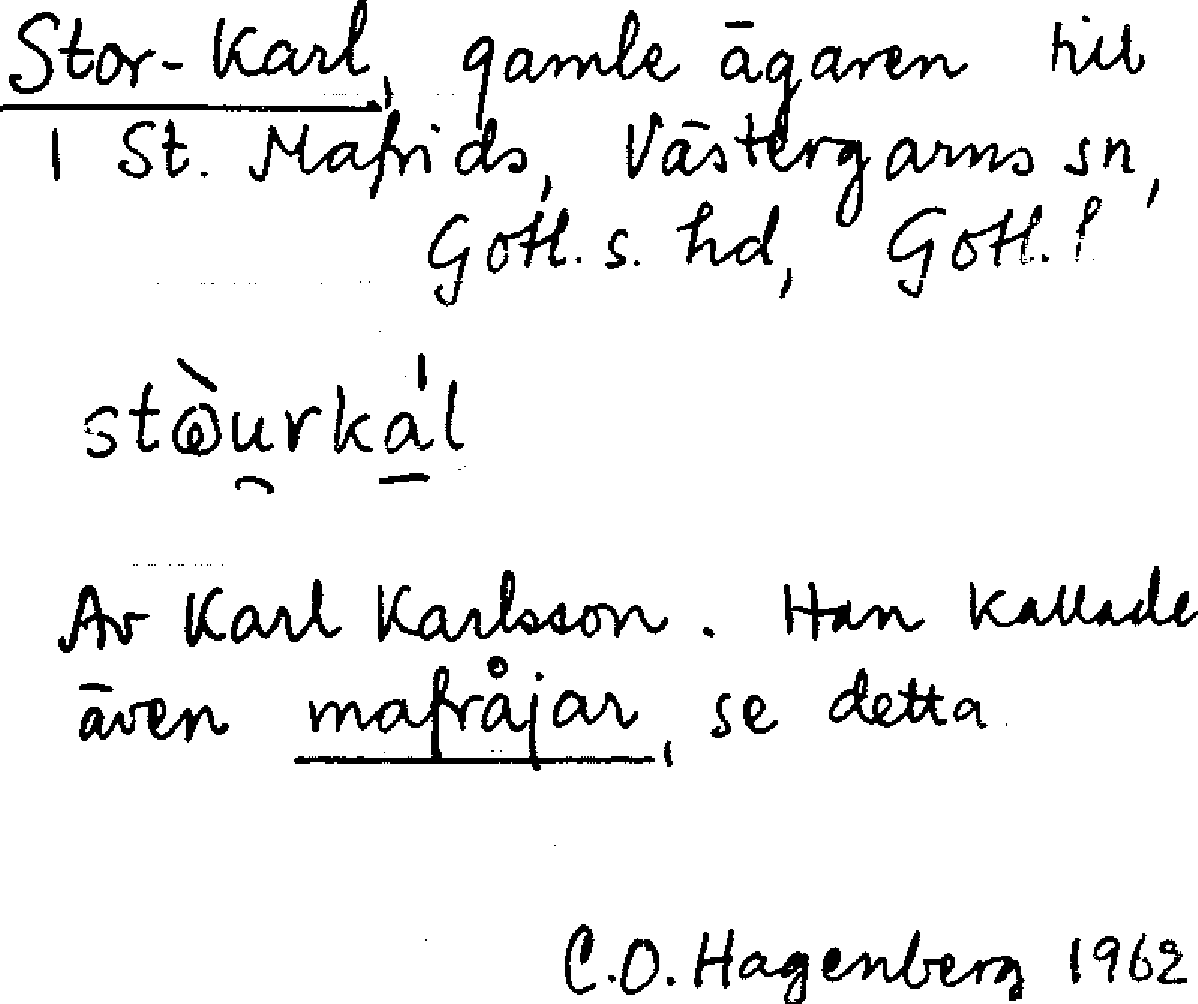 Stor-Karl, gamle ägaren till
1 St. Mafrids, Västergarns sn,
Gotl. s. hd, Gotl. l
Av Karl Karlsson. Han kallade
även mafråjar, se detta
C.O. Hagenberg 1962